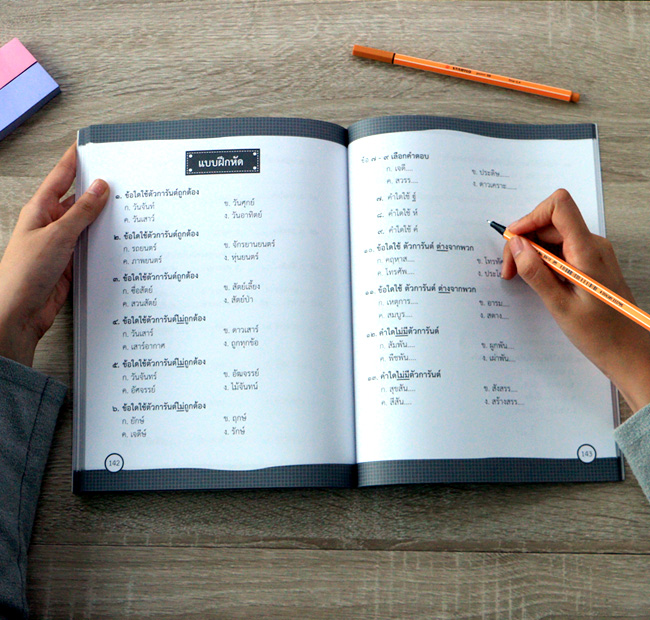 แบบฝึกหัด
๑. ข้อใดใช้ตัวการันต์ถูกต้อง
ก. วันจันท์ ข. วันศุกย์
ค. วันเสาว์ ง. วันอาทิตย์
๒. ข้อใดใช้ตัวการันต์ถูกต้อง
ก. รถยนตร์ ข. จักรยานยนตร์
ค. ภาพยนตร์ ง. หุ่นยนตร์
๓. ข้อใดใช้ตัวการันต์ถูกต้อง
ก. ซื่อสัตย์ ข. สัตย์เลี้ยง
ค. สวนสัตย์ ง. สัตย์ป่า
๔. ข้อใดใช้ตัวการันต์ไม่ถูกต้อง
ก. วันเสาร์ ข. ดาวเสาร์
ค. เสาร์อากาศ ง. ถูกทุกข้อ
๕. ข้อใดใช้ตัวการันต์ไม่ถูกต้อง
ก. วันจันทร์ ข. อัฒจรรย์
ค. อัศจรรย์ ง. ไม้จันทน์
๖. ข้อใดใช้ตัวการันต์ไม่ถูกต้อง
ก. ยักษ์ ข. ฤกษ์
ค. เจดีษ์ ง. รักษ์
142
ข้อ ๗ - ๙ เลือกคำตอบ
ก. เจดี.... ข. ประดิษ....
ค. สวรร.... ง. ดาวเคราะ....
๗. คำใดใช้ ฐ์
๘. คำใดใช้ ห์
๙. คำใดใช้ ค์
๑๐. ข้อใดใช้ ตัวการันต์ ต่างจากพวก
ก. คฤหาส.... ข. โทรทัศ
ค. โทรศัพ.... ง. ประโย
๑๑. ข้อใดใช้ ตัวการันต์ ต่างจากพวก
ก. เหตุการ.... ข. อารม....
ค. สมบูร.... ง. สตาง....
๑๒. คำใดไม่มีตัวการันต์
ก. สัมพัน.... ข. ผูกพัน....
ค. พืชพัน.... ง. เผ่าพัน....
๑๓. คำใดไม่มีตัวการันต์
ก. สุขสัน.... ข. สังสรร....
ค. สีสัน.... ง. สร้างสรร....
143